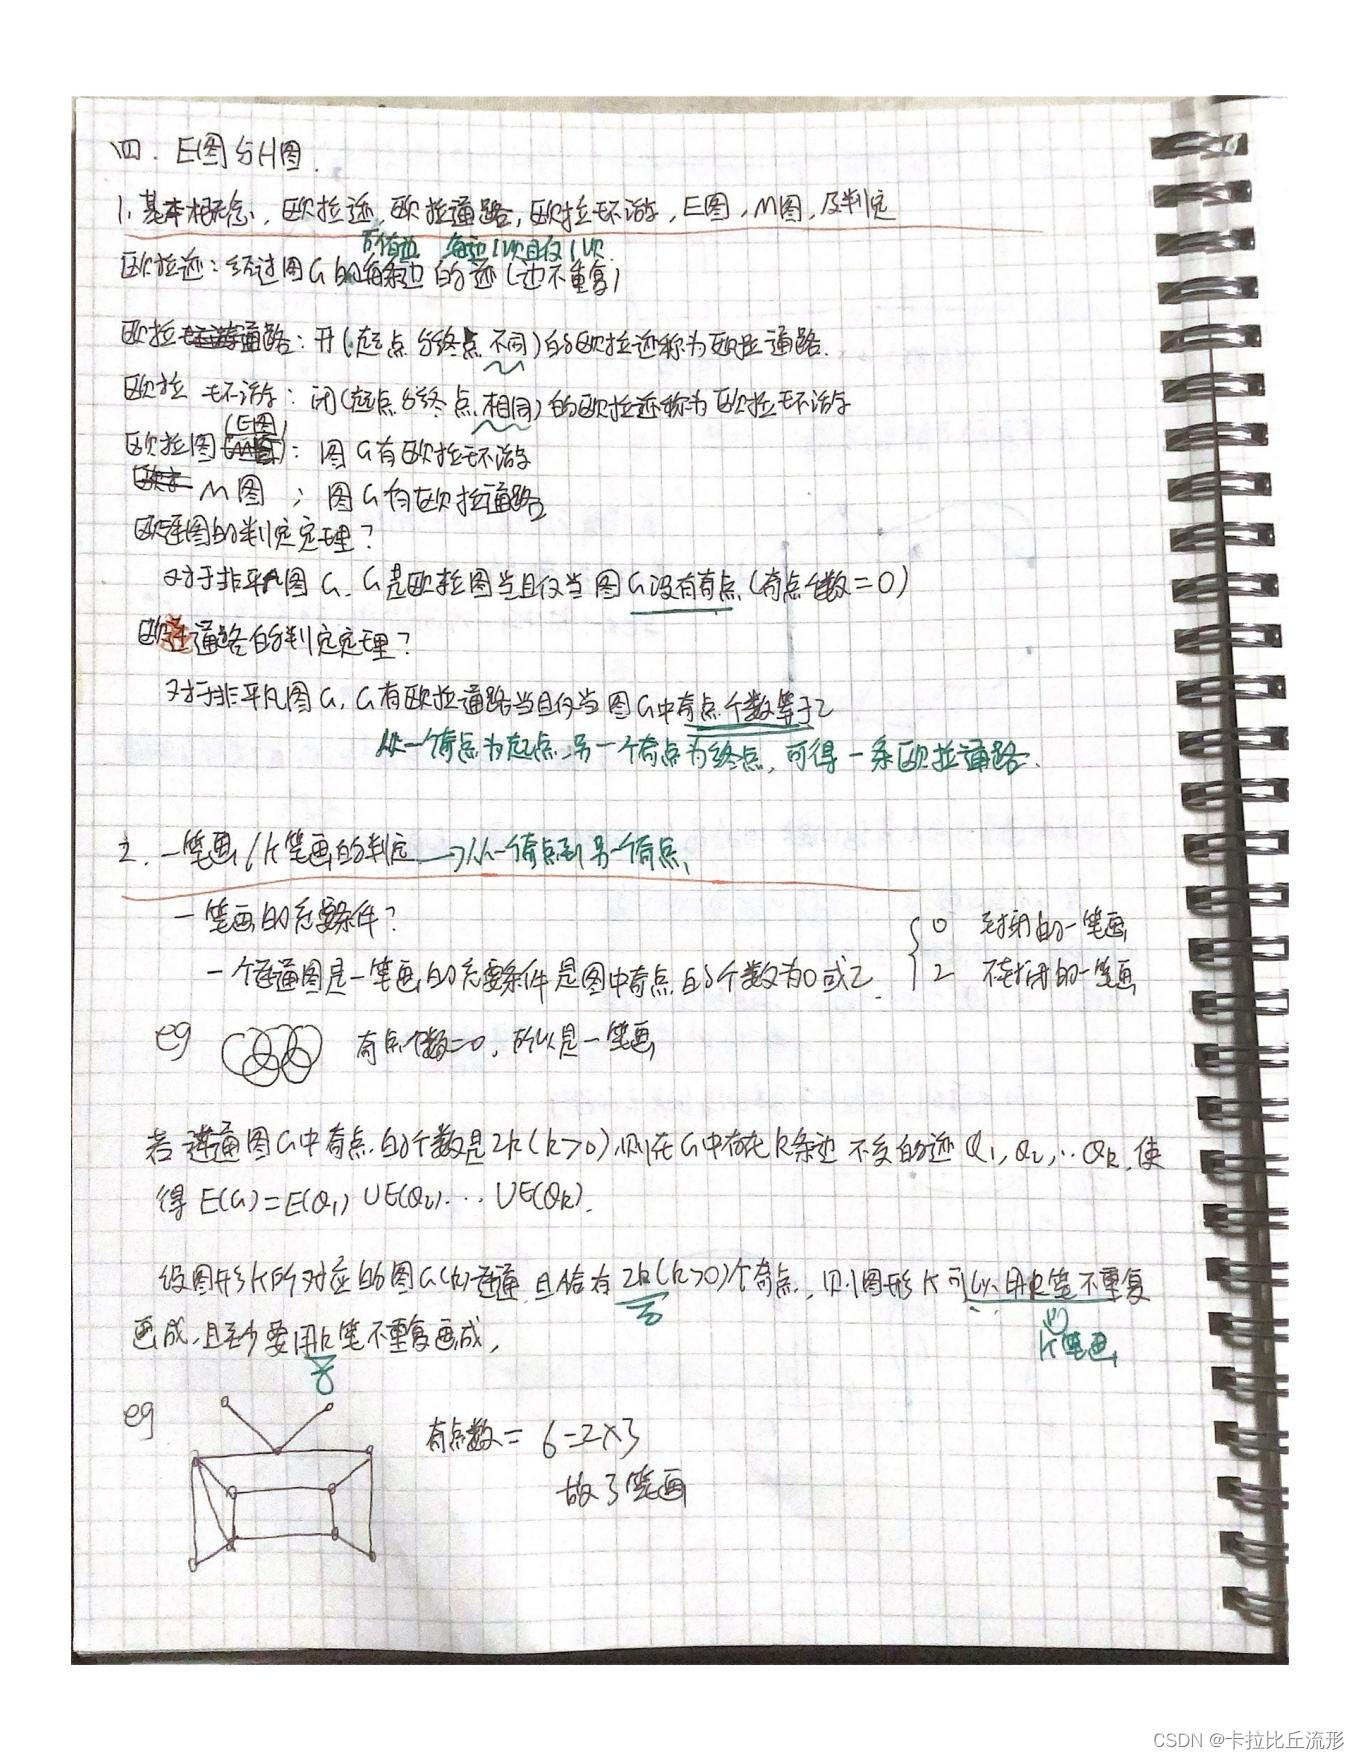 四. E图与H图.
1. 基本概念, 欧拉迹, 欧拉通路, 欧拉环游, E图, M图, 及判定
所有边 每边1次且仅1次
欧拉迹: 经过图G的每条边的迹 (边不重复)
欧拉通路: 开(起点与终点不同)的欧拉迹称为欧拉通路.
欧拉环游: 闭(起点与终点相同)的欧拉迹称为欧拉环游
(E图)
欧拉图: 图G有欧拉环游
M图: 图G有欧拉通路
欧拉图的判定定理?
对于非平凡图G, G是欧拉图当且仅当图G没有奇点(奇点个数=0)
欧拉通路的判定定理?
对于非平凡图G, G有欧拉通路当且仅当图G中奇点个数等于2
从一个奇点为起点, 另一个奇点为终点, 可得一条欧拉通路.
2. 一笔画/k笔画的判定 → 从一个奇点到另一个奇点
一笔画的充要条件?
0 封闭的一笔画
一个连通图是一笔画的充要条件是图中奇点的个数为0或2.
2 不封闭的一笔画
eg 奇点个数=0, 所以是一笔画
若连通图G中奇点的个数是2k(k>0), 则在G中存在k条边不交的迹Q1, Q2, ... Qk, 使
得 E(G)=E(Q1)∪E(Q2)...∪E(Qk).
设图形K所对应的图G(k)连通且恰有2k(k>0)个奇点, 则图形K可以用k笔不重复
画成, 且至少要用k笔不重复画成,
k笔画
eg 奇点数= 6=2×3
故3笔画
CSDN @卡拉比丘流形